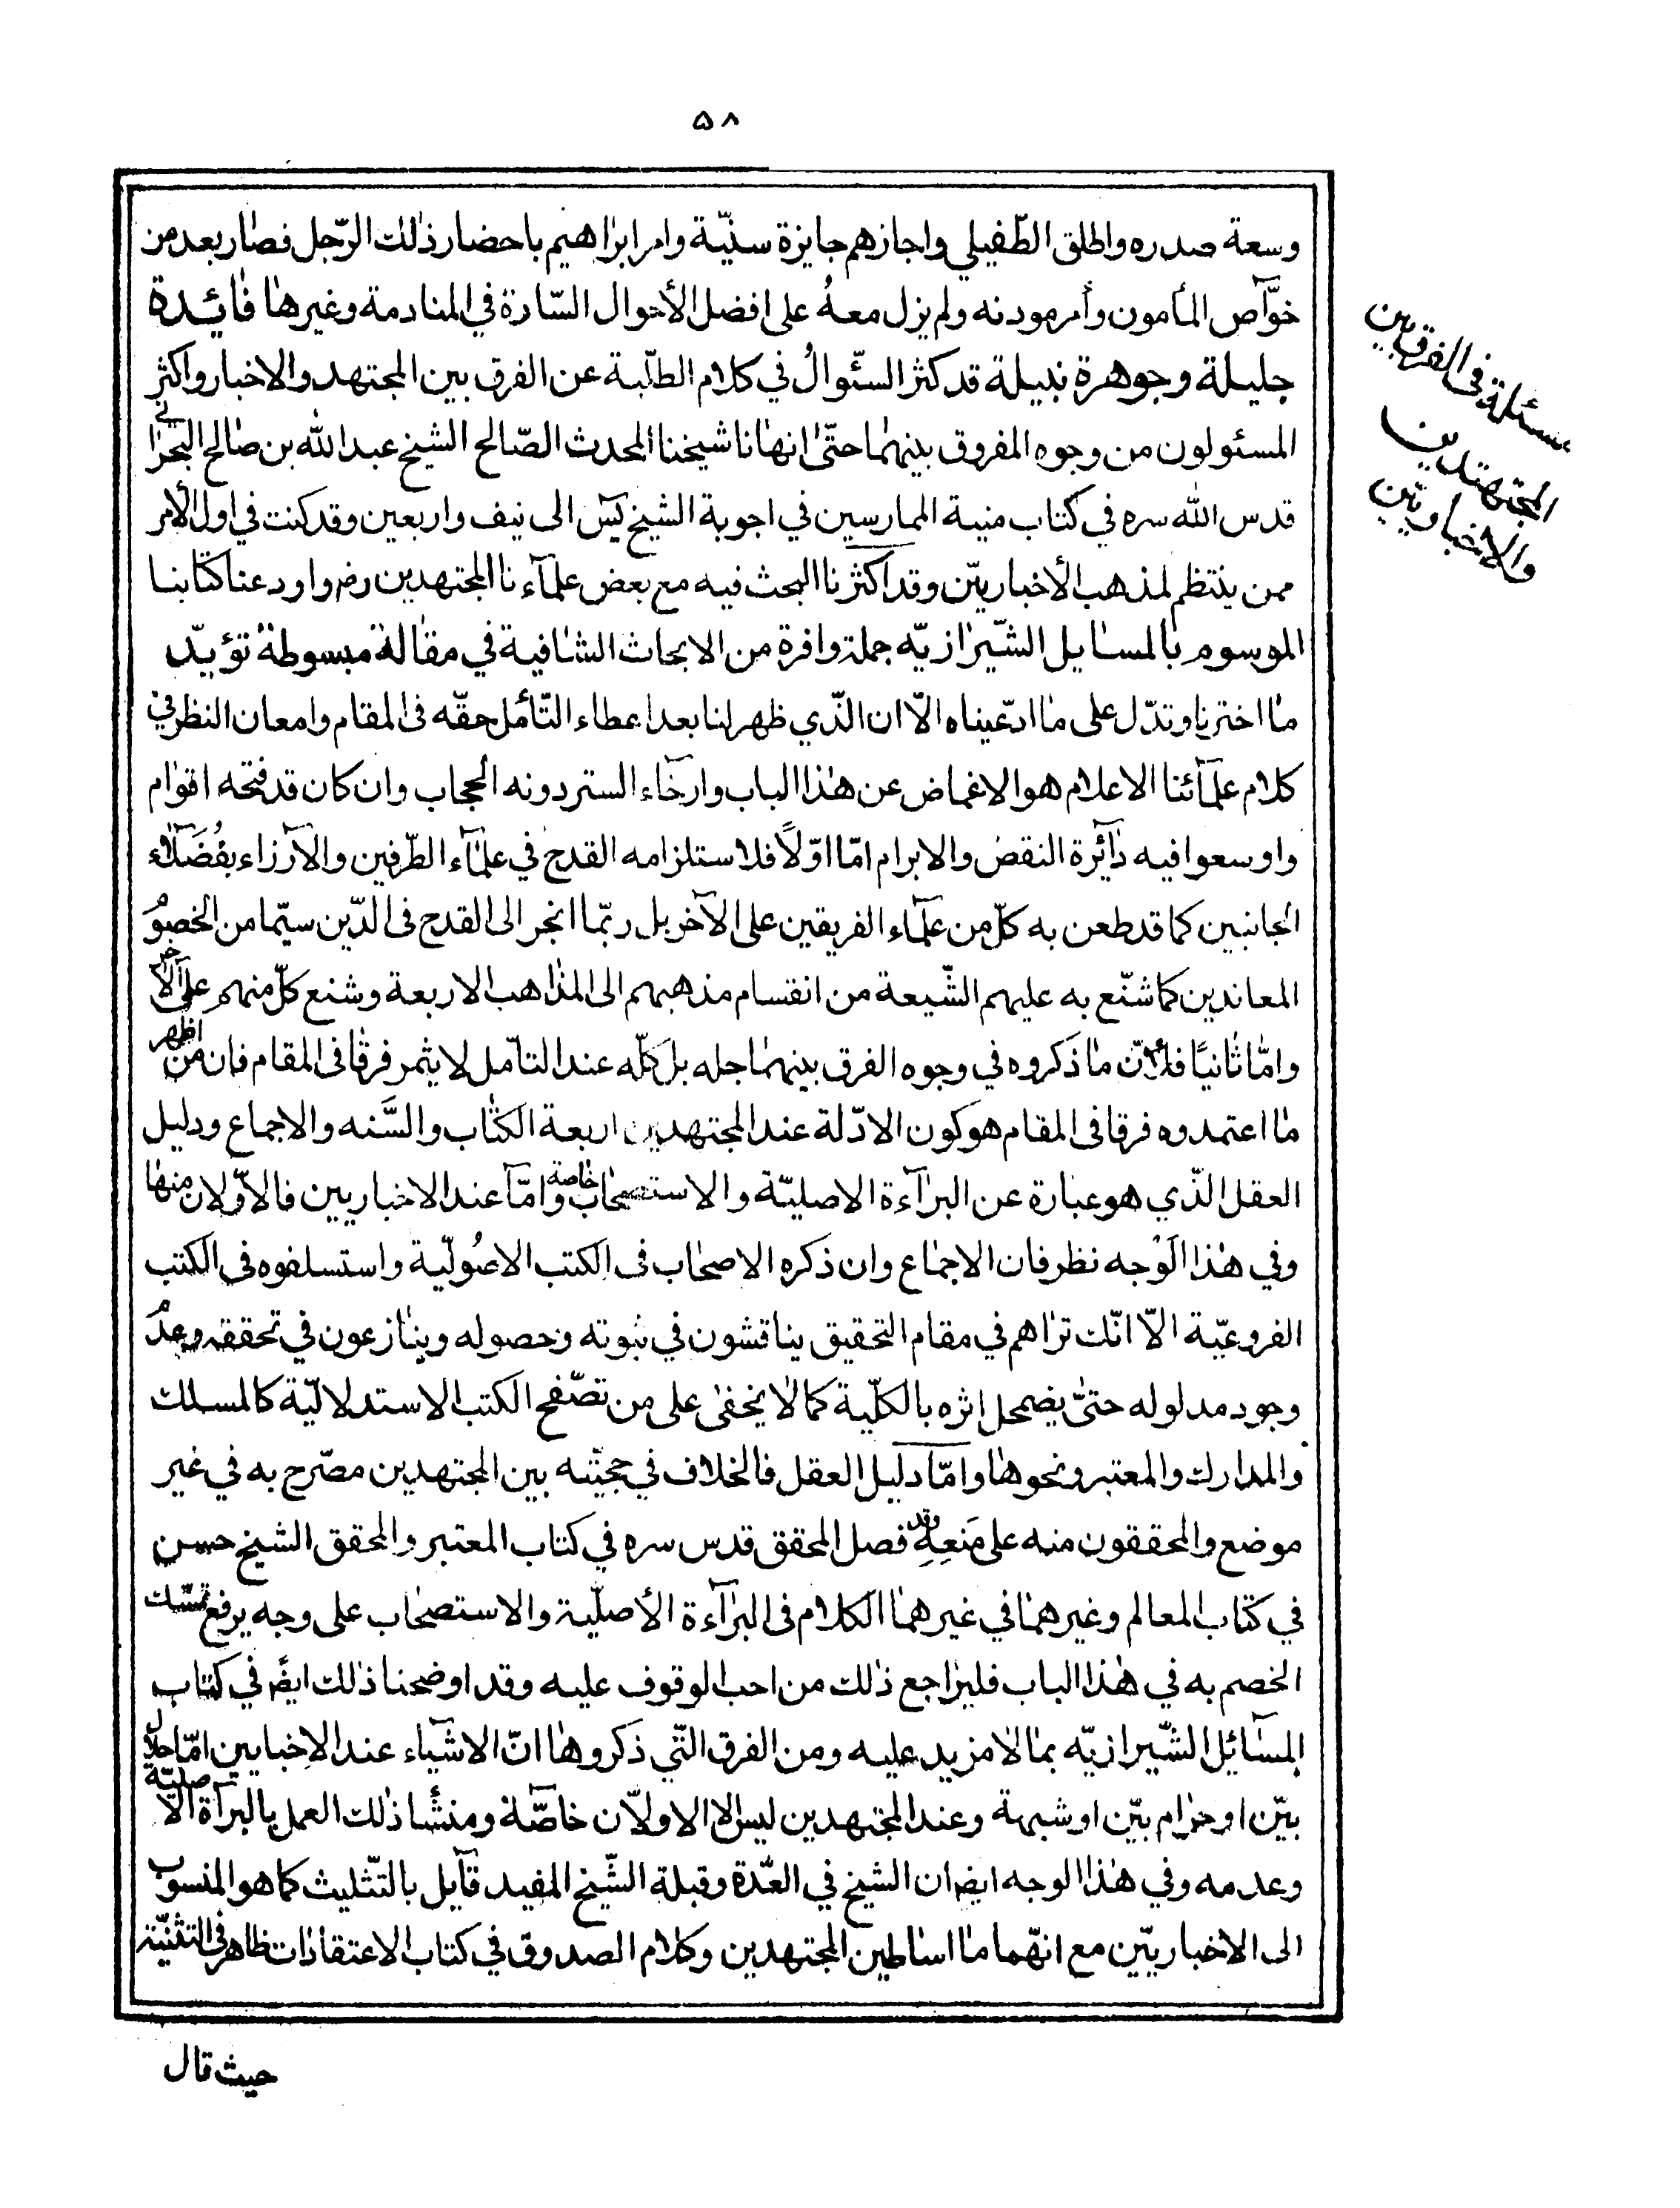 ٥٨
وسعة صدره واطلق الطّفيلي واجازهم جايزة سنيّة وامر ابرٰاهيم باحضار ذٰلك الرّجل فصٰار بعد من
خوّآص المأمون وأمر مودنه ولم يزل معهُ على افضل الأحوال السّارّة في المنادمة وغيرهٰا فٰائِدة
جليلة وجوهرة نبيلة قد كثر السئوالُ في كلام الطلّبة عن الفرق بين المجتهد والاخبار واكثر
المسئولون من وجوه المفروق بينهمٰا حتّىٰ انهٰانا شيخنا المحدث الصّالح الشيخ عبد الله بن صٰالح البحرٰاني
قدس الله سره في كتاب منية الممارسين في اجوبة الشيخ يٓس الى نيف واربعين وقد كنت في اول الأمر
ممن ينتظم لمذهب الأخباريّين وقد اكثرنا البحث فيه مع بعض علمآءنا المجتهدين رضه واودعنا كتابنا
الموسوم بٰالمسٰايل الشّيرٰازيّه جملة وافرة من الابحاث الشٰافية في مقٰالة مبسوطة تؤيّد
مٰا اخترنا وتدّل على مٰا ادّعيناه الّا ان الّذي ظهر لنا بعد اعطاء التّأمل حقّه فى المقام وامعان النظر في
كلام علمآئنا الاعلام هو الاغماض عن هٰذا الباب وارخٰاء الستر دونه الحجاب وان كان قد فتحه اقوٰام
واوسعوا فيه دٰآئرة النقض والابرام امّا اوّلًا فلا ستلزامه القدح في علمٰآء الطّرفين والآرزاء بفُضَلآء
الجانبين كما قد طعن به كلّ من علمآء الفريقين على الآخر بل ربّما انجر الى القدح فى الدّين سيّما من الخصوم
المعاندين كما شنّع به عليهم الشّيعة من انقسام مذهبهم الى المذٰاهب الاربعة وشنع كلّ منهم على الآخر
وامّٰا ثٰانيًا فلأنّ مٰا ذكروه في وجوه الفرق بينهمٰا جله بل كلّه عند التأمل لا يثمر فرقًا فى المقام فان من اظهر
مٰا اعتمدوه فرقا فى المقام هو كون الادّلة عند المجتهدين اربعة الكتٰاب والسَّنه والاجماع ودليل
العقل الّذي هو عبارة عن البرٰآءة الاصليّة والاستصحٰاب خٰاصة وامّآ عند الاخباريين فالاوّلان منهٰا
وفي هٰذا الَوْجه نظر فان الاجمٰاع وان ذكره الاصحٰاب فى الكتب الاصُولّية واستسلفوه فى الكتب
الفروعيّة الّا انّك ترٰاهم في مقام التحقيق يناقشون في ثبوته وحصوله وينٰازعون في تحققه وعدم
وجود مدلوله حتىّٰ يضمحل اثره بالكلّية كمالٰا يخفىٰ على من تصّفح الكتب الاستدلاليّة كالمسلك
والمدارك والمعتبر ونحوهٰا وامّا دليل العقل فالخلاف في حجيّته بين المجتهدين مصّرح به في غير
موضع والمحققون منه على مَنعِهِ وقد فصل المحقق قدس سره في كتاب المعتبر والمحقق الشيخ حسن
في كتٰاب المعالم وغيرهمٰا في غيرهمٰا الكلام فى البرٰآءة الأصليّة والاستصحٰاب على وجه يرفع تمسّك
الخصم به في هٰذا الباب فليرٰاجع ذٰلك من احب الوقوف عليه وقد اوضحنا ذٰلك ايضًا في كتاب
المسٰآئل الشّيرازيّه بمالٰا مزيد عليه ومن الفرق الّتي ذكروهٰا انّ الاشيٰاء عند الاخبايين امّا حلال
بيّن او حرٰام بيّن او شبهة وعند المجتهدين ليس الا الاولّان خاصّة ومنشأ ذٰلك العمل بالبرآة الاصليّة
وعدمه وفي هٰذا الوجه ايضا ان الشيخ في العّدة وقبلة الشّيخ المفيد قآيل بالتّثليث كما هو المنسوب
الى الاخباريّين مع انهّما مٰا اسٰاطين المجتهدين وكلام الصدوق في كتاب الاعتقادٰات ظاهر فى التثنيّة
حيث قال
مسئلة فى الفرق بين
المجتهدين
والاخباريّين